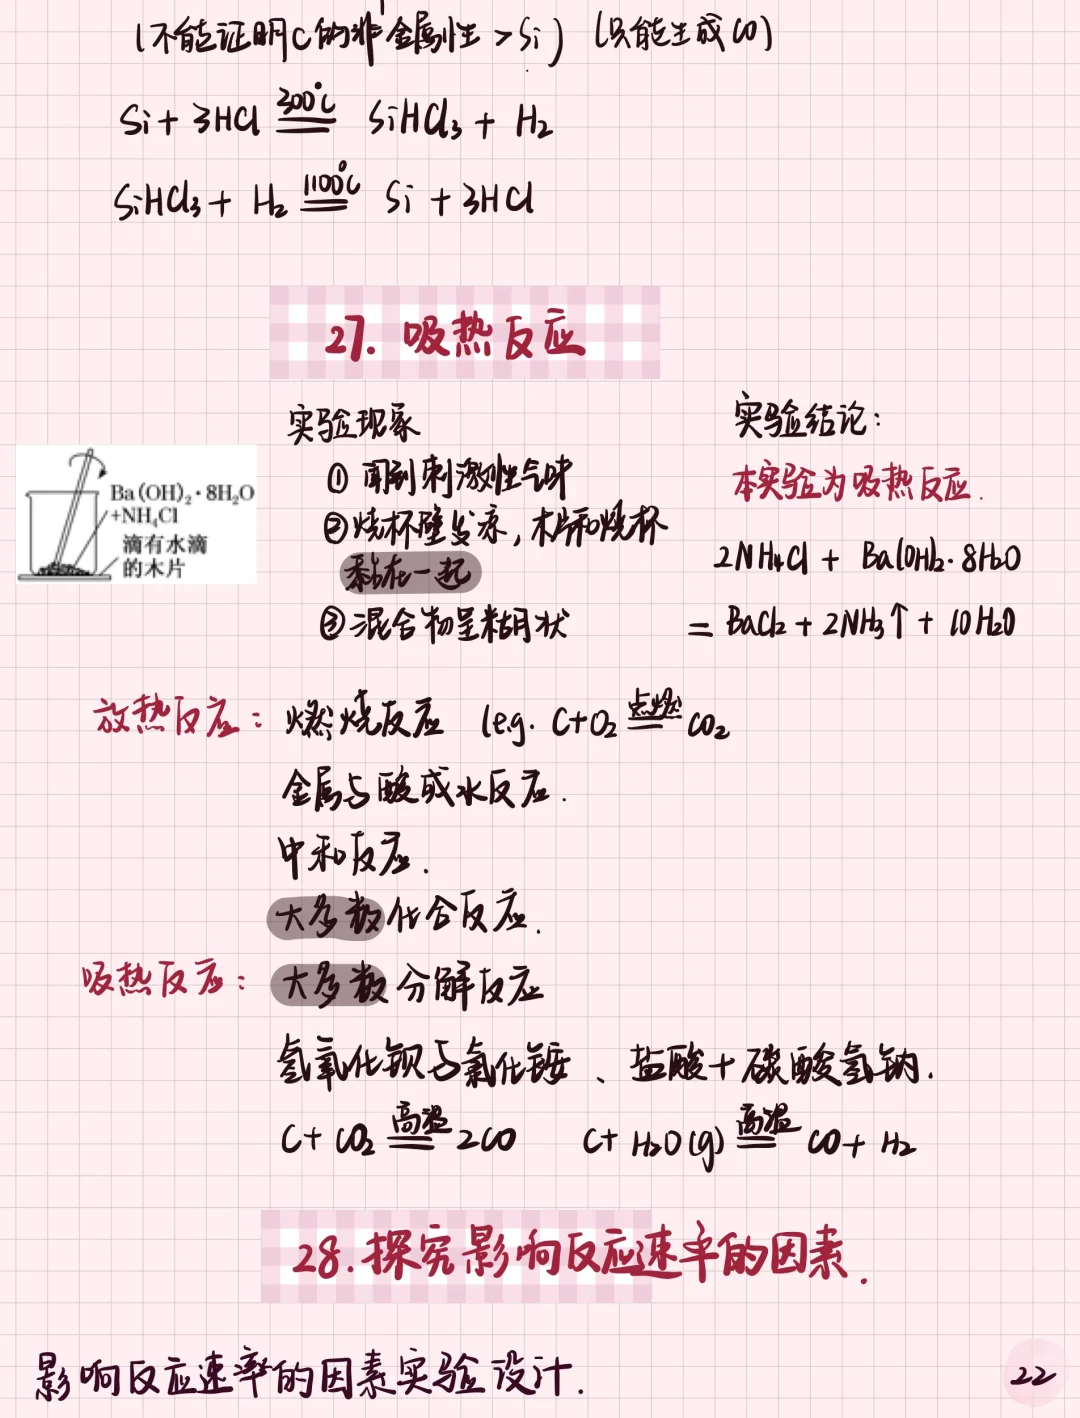 (不能证明C的非金属性>Si) (只能生成CO)
Si + 3HCl 300℃ == SiHCl₃ + H₂
SiHCl₃ + H₂ 1100℃ == Si + 3HCl
27. 吸热反应
实验现象
① 闻到刺激性气味
②烧杯壁发凉，木片和烧杯
黏在一起
③混合物呈糊状
Ba(OH)₂·8H₂O
+NH₄Cl
滴有水滴
的木片
实验结论：
本实验为吸热反应.
2NH₄Cl + Ba(OH)₂·8H₂O
= BaCl₂ + 2NH₃↑ + 10H₂O
放热反应： 燃烧反应 (e.g. C+O₂ 点燃 == CO₂
金属与酸或水反应.
中和反应.
大多数化合反应.
吸热反应： 大多数分解反应
氢氧化钡与氯化铵、盐酸+碳酸氢钠.
C + CO₂ 高温 == 2CO C + H₂O(g) 高温 == CO + H₂
28.探究影响反应速率的因素.
影响反应速率的因素实验设计.
22